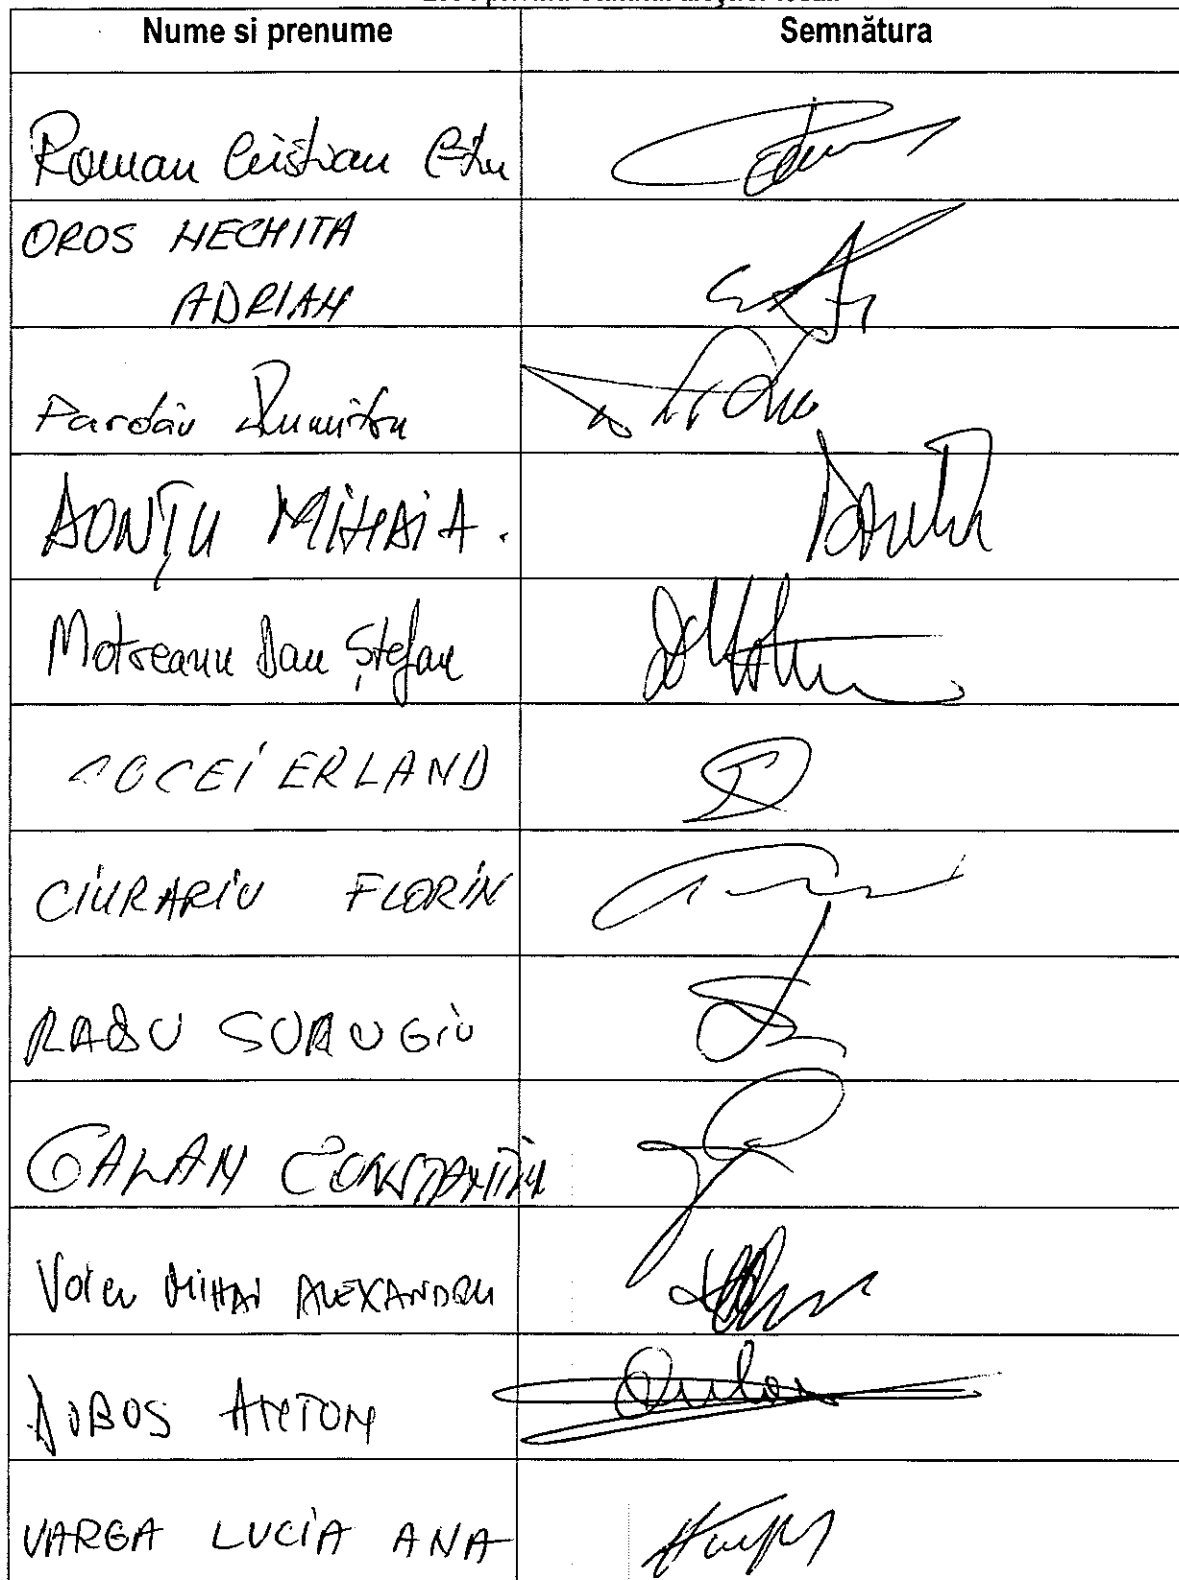 Nume si prenume Semnătura
Roman Cristian
OROS NECHITA
ADRIAN
Pardău Dumitru
DONȚU MIHAIA.
Motreanu Dan Ștefan
COCEI ERLAND
CIURARIU FLORIN
RADU SURUGIU
GALAN CONSTANTIN
Voicu MIHAI ALEXANDRU
DOBOS ANTON
VARGA LUCIA ANA